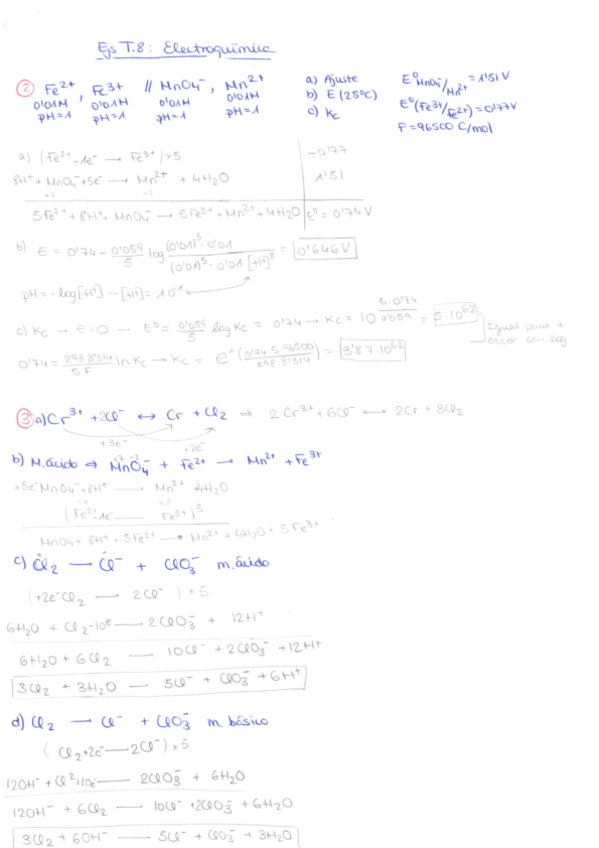 Ejs T.8: Electroquímica
② Fe²⁺, Fe³⁺ // MnO₄⁻, Mn²⁺
0'01M 0'01M 0'01M 0'01M
pH=1 pH=1 pH=1 pH=1
a) Ajuste
b) E (25ºC)
c) Kc
E⁰ MnO₄⁻/Mn²⁺ = 1'51 V
E⁰(Fe³⁺/Fe²⁺) = 0'77V
F = 96500 C/mol
a) (Fe²⁺ -1e⁻ → Fe³⁺) x5 -0'77
8H⁺ + MnO₄⁻ + 5e⁻ → Mn²⁺ + 4H₂O 1'51
+7 +2
5Fe²⁺ + 8H⁺ + MnO₄⁻ → 5Fe³⁺ + Mn²⁺ + 4H₂O E⁰ = 0'74V
b) E = 0'74 - 0'059/5 log (0'01)⁵·0'01/(0'01)⁵·0'01 [H⁺]⁸ = 0'646V
pH = -log[H⁺] → [H⁺] = 10⁻¹
c) Kc → E=0 → E⁰ = 0'059/5 log Kc = 0'74 → Kc = 10^(5·0'74/0'059) = 5·10⁶²
Igual pero +
error con log
0'74 = 298·8'314/5F ln Kc → Kc = e^(0'74·5·96500/298·8'314) = 3'87·10⁶²
③ a) Cr³⁺ + 2Cl⁻ ↔ Cr + Cl₂ ⇒ 2Cr³⁺ + 6Cl⁻ ↔ 2Cr + 3Cl₂
+3e⁻ +2e⁻
b) M. ácido ⇒ MnO₄⁻ + Fe²⁺ → Mn²⁺ + Fe³⁺
+7 -2
+5e⁻ MnO₄⁻ + 8H⁺ → Mn²⁺ 4H₂O
(Fe²⁺ -1e⁻ → Fe³⁺)5
MnO₄ + 8H⁺ + 5Fe²⁺ → Mn²⁺ + 4H₂O + 5Fe³⁺
c) Cl₂ → Cl⁻ + ClO₃⁻ m. ácido
(+2e⁻ Cl₂ → 2Cl⁻) x5
6H₂O + Cl₂ - 10e⁻ → 2ClO₃⁻ + 12H⁺
6H₂O + 6Cl₂ → 10Cl⁻ + 2ClO₃⁻ + 12H⁺
3Cl₂ + 3H₂O → 5Cl⁻ + ClO₃⁻ + 6H⁺
d) Cl₂ → Cl⁻ + ClO₃⁻ m. básico
(Cl₂ + 2e⁻ → 2Cl⁻) x5
12OH⁻ + Cl₂ + 10e⁻ → 2ClO₃⁻ + 6H₂O
12OH⁻ + 6Cl₂ → 10Cl⁻ + 2ClO₃⁻ + 6H₂O
3Cl₂ + 6OH⁻ → 5Cl⁻ + ClO₃⁻ + 3H₂O